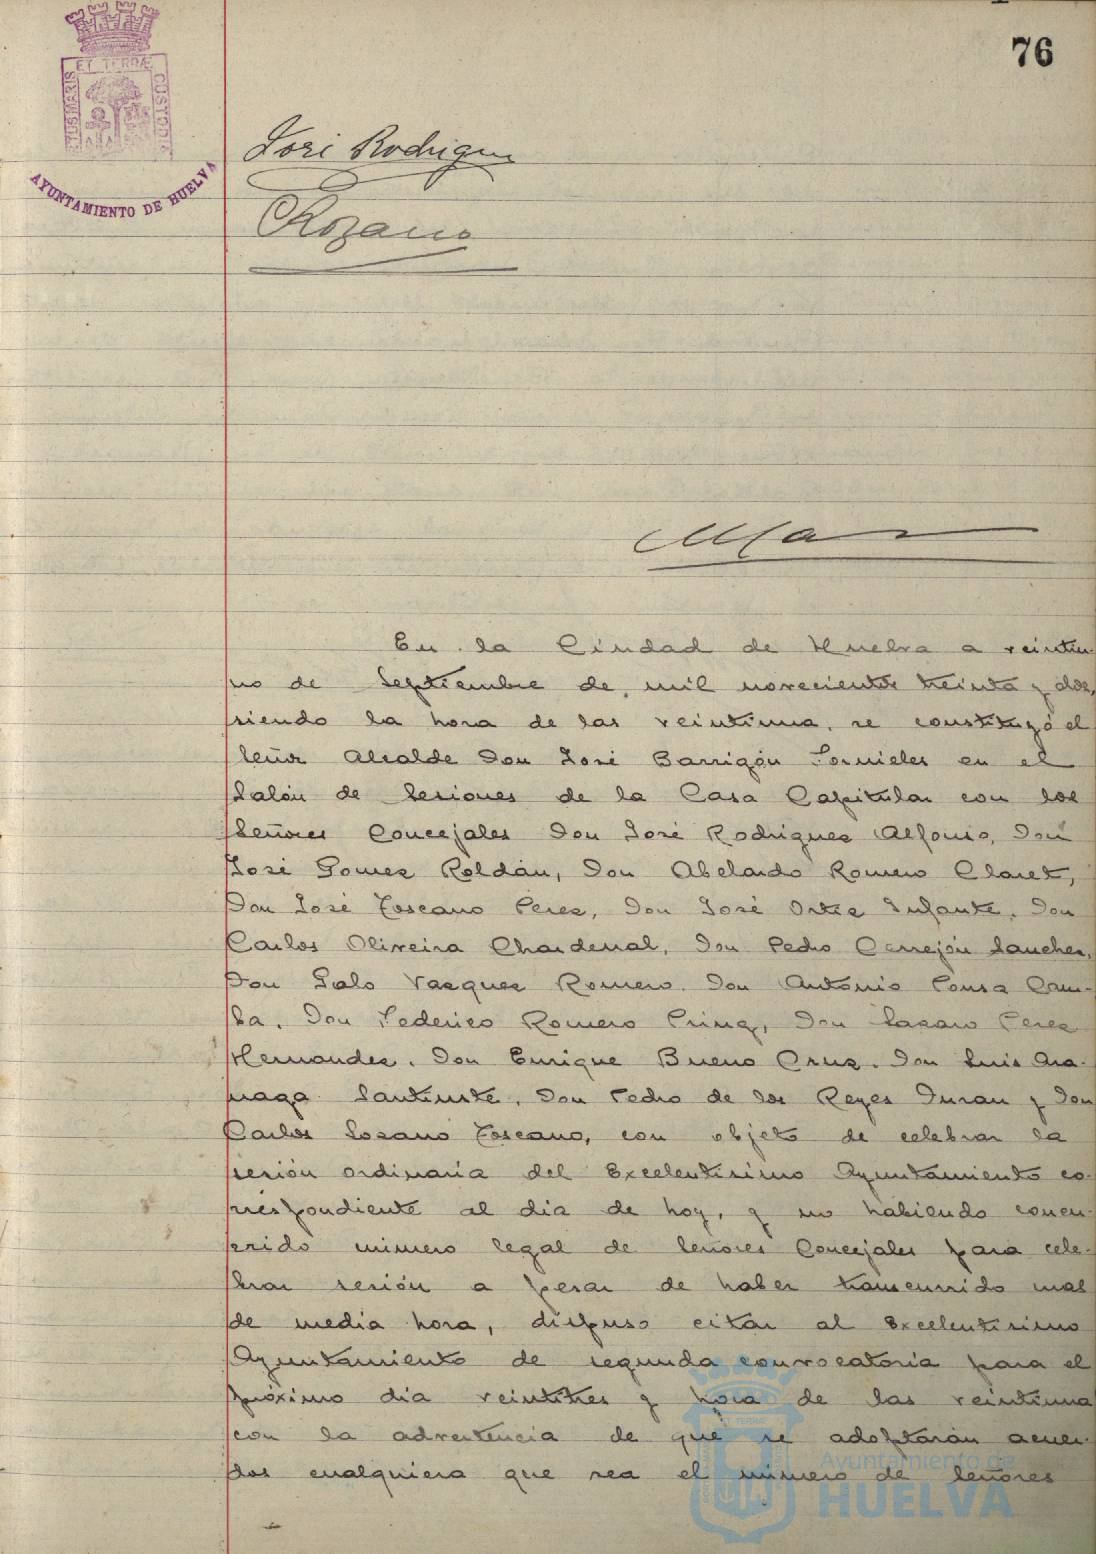 76
ET TERRÆ
CUSTODIA
AYUNTAMIENTO DE HUELVA
José Rodrigue
Lozano
En la Ciudad de Huelva a veintiu-
no de Septiembre de mil novecientos treinta y dos,
siendo la hora de las veintiuna, se constituyó el
Señor Alcalde Don José Barrigón Fornieles en el
Salón de Sesiones de la Casa Capitular con los
Señores Concejales Don José Rodriguez Alfonso, Don
José Gomez Roldán, Don Abelardo Romero Claret,
Don José Toscano Perez, Don José Ortiz Infante, Don
Carlos Oliveira Chardenal, Don Pedro Cerrejón Sanchez,
Don Galo Vazquez Romero, Don Antonio Pousa Cam-
ba, Don Federico Romero Prinz, Don Lazaro Perez
Hernandez, Don Enrique Bueno Cruz, Don Luis Ara-
naga Santiuste, Don Pedro de los Reyes Duran y Don
Carlos Lozano Toscano, con objeto de celebrar la
sesión ordinaria del Excelentisimo Ayuntamiento co-
rrespondiente al dia de hoy, y no habiendo concu-
rrido número legal de Señores Concejales para cele-
brar sesión a pesar de haber transcurrido mas
de media hora, dispuso citar al Excelentisimo
Ayuntamiento de segunda convocatoria para el
próximo dia veintitres y hora de las veintiuna
con la advertencia de que se adoptarán acuer-
dos cualquiera que sea el número de Señores
Ayuntamiento de
HUELVA